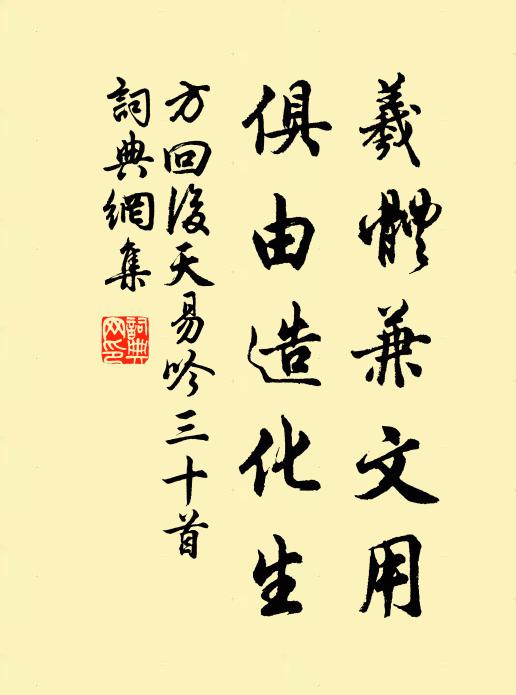 羲體兼文用
俱由造化生
方回後天易吟三十首
詞典網集
詞典
网印